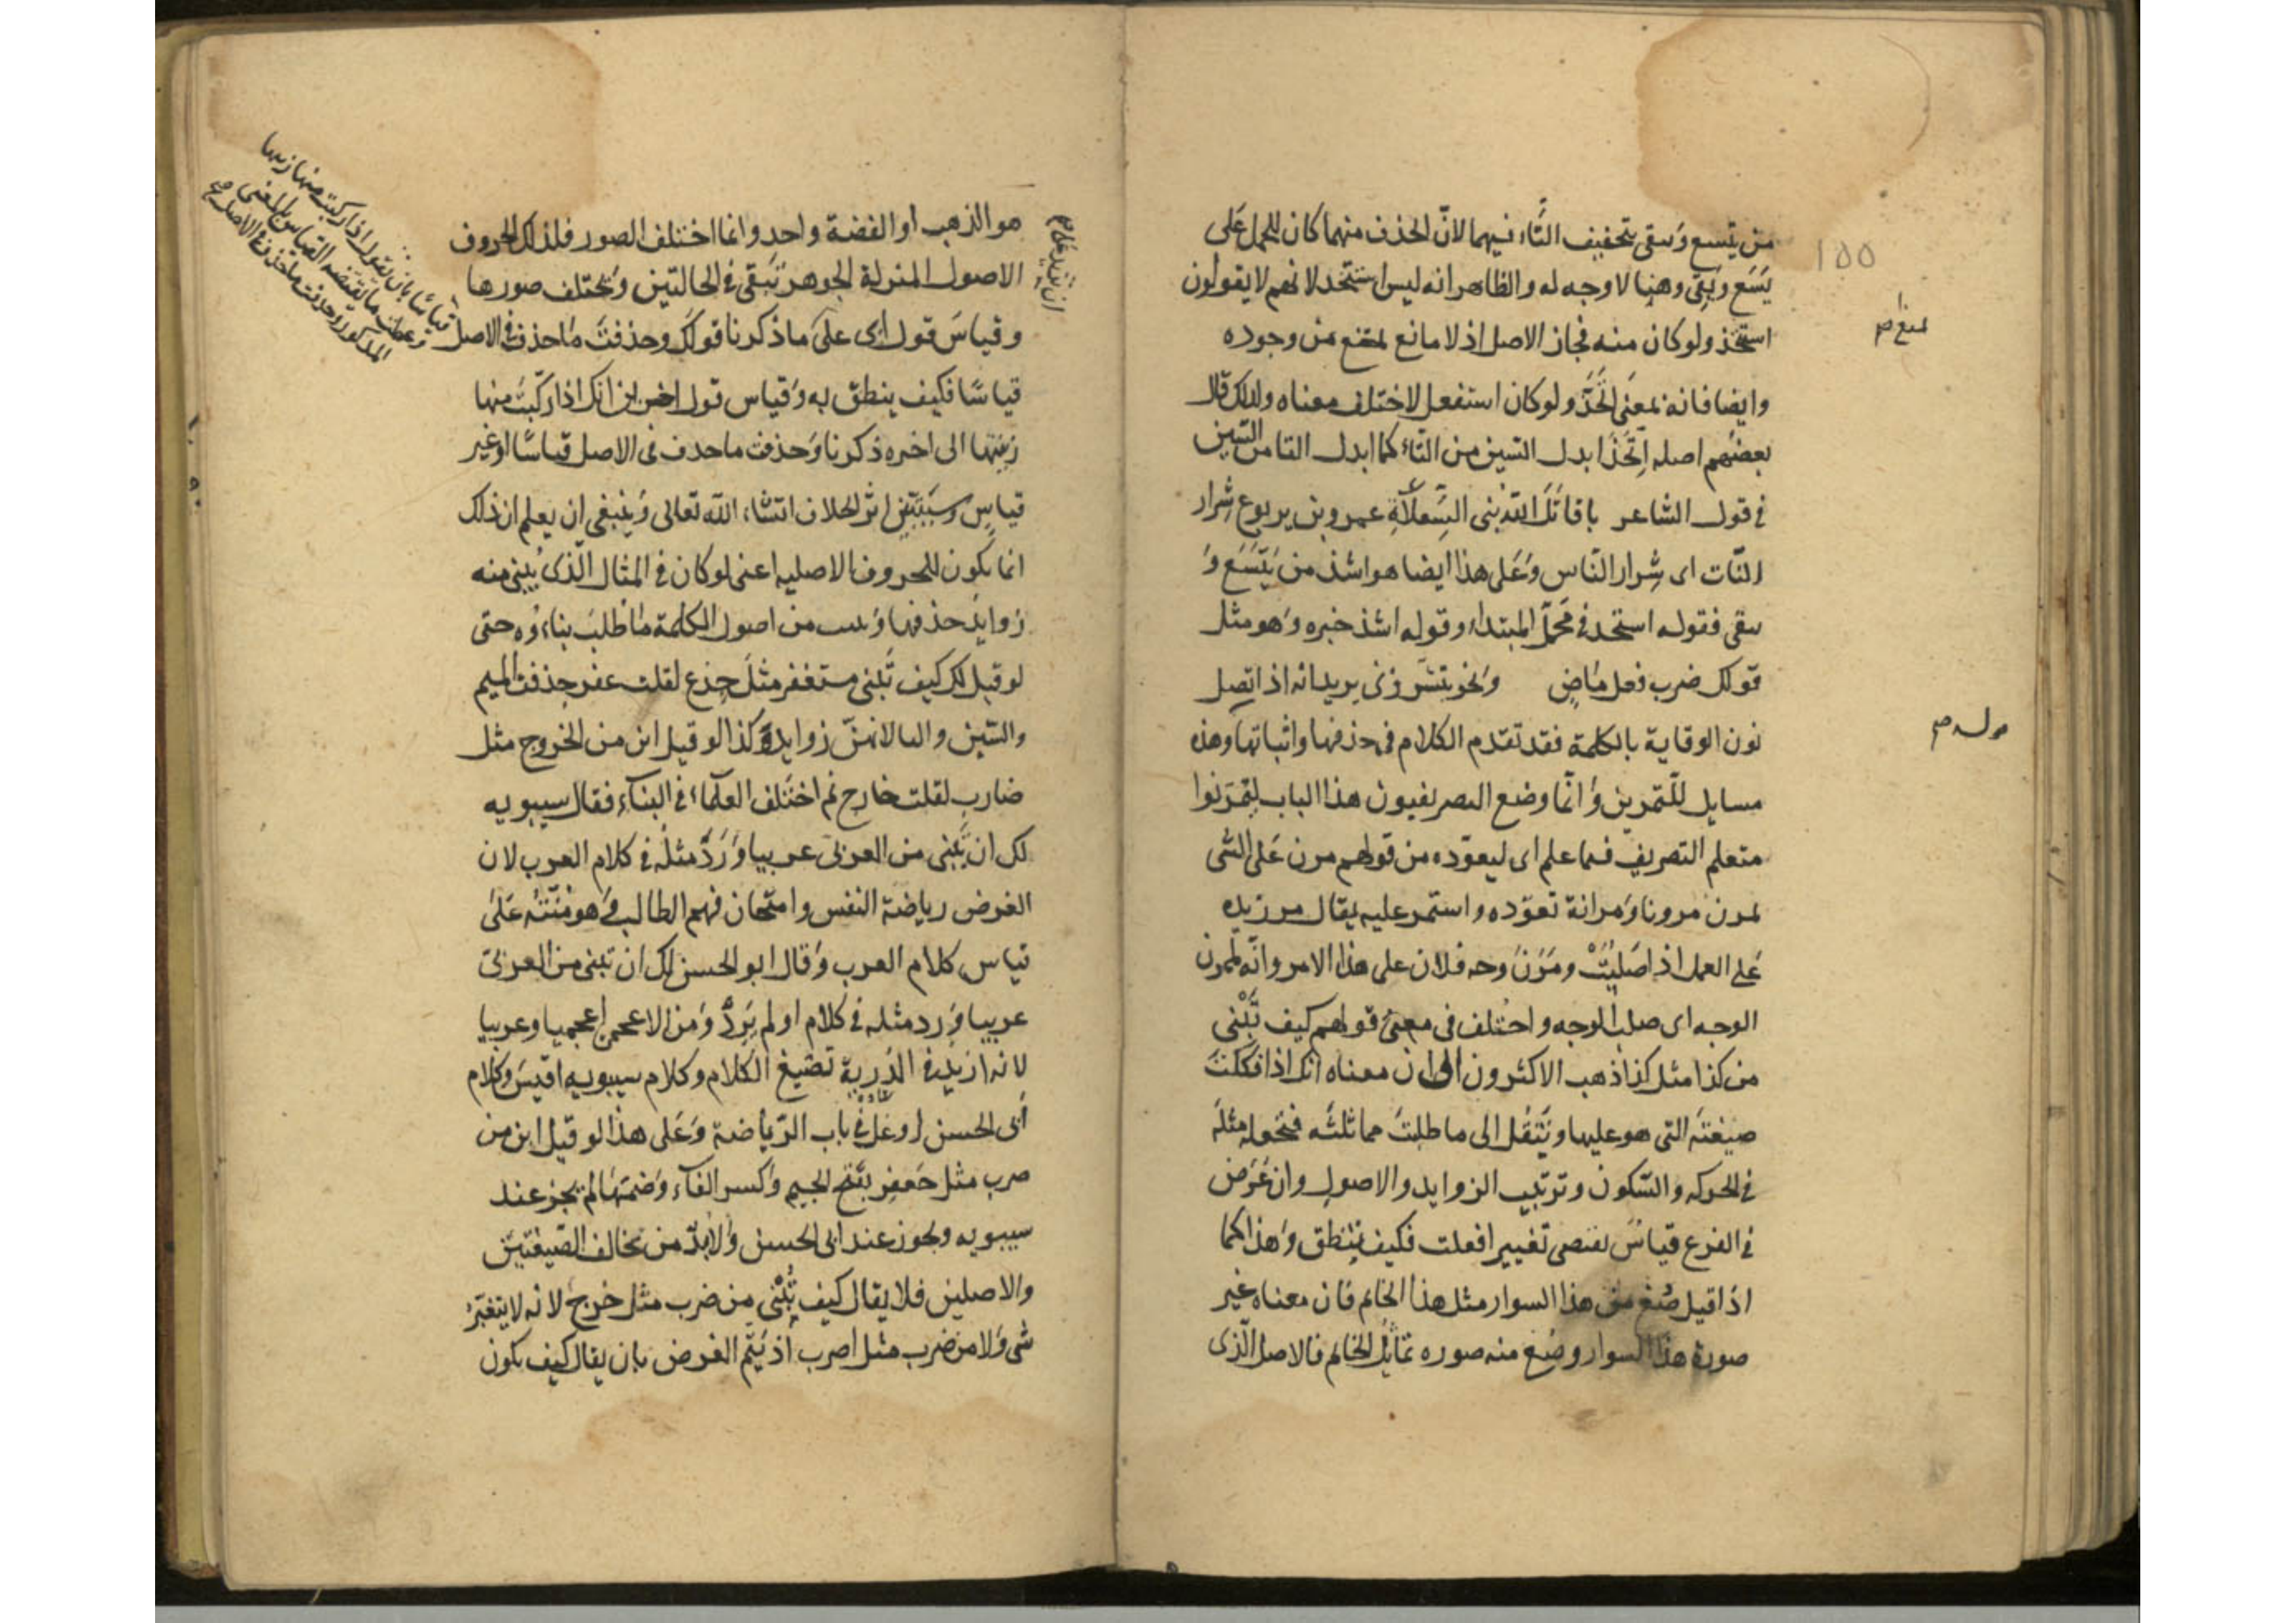 من يتسع ويتقى بتخفيف التاء فيهما لان الحذف منهما كان للحمل على
يَسَع وَيَقى وهنا لا وجه له والظاهر انه ليس استخذ لانهم لا يقولون
استتخذ ولو كان منه فجاز الاصل اذ لا مانع يمنع من وجوده
وايضا فانه بمعنى اتَّخَذَ ولو كان استفعل لاختلف معناه ولذلك قال
بعضهم اصله اِتَّخَذَ ابدل السين من التاء كما ابدل التا من السّين
فى قول الشاعر يا قاتَلَ اللّه بنى السِّعلاَةِ عمرو بن يربوع شِرار
النّات اى شِرار النّاس وَعَلى هذا ايضا هو اشذ من يَتَسَع وَ
يتقى فقوله استخذ فى مَحَلّ المبتداء وقوله اشذ خبره وَهو مثل
قولك ضرب فعل مَاضٍ وَنحو تبشّرونى يريد انه اذا تصل
نون الوقاية بالكلمة فقد تقدم الكلام فى حذفها واثباتها وهذه
مسايل للتّمرين وَانّما وضع التصريفيون هذا الباب ليتمَرّنوا
متعلم التصريف فيما علم اى ليعوّده من قولهم مرن عَلى الشى
يمرن مرونا وَمرانة تعوّده واستمر عليه يقال مرن يده
عَلى العمل اذا صَلبَتْ ومَرَنَ وجه فلان على هذا الامر وانّه لممرن
الوجه اى صلب الوجه واختلف فى معنى قولهم كيف تَبْنى
من كذا مثل كذا ذهب الاكثرون الى ان معناه انك اذا فككتَ
صيغتَه التى هو عليها وتَنقُل الى ما طلبتَ مماثلتَه فتحوله مثلَه
فى الحركه والسّكون وترتيب الزوايد والاصول وان عَرَض
فى الفرع قياسٌ يقتضى تغييرا فعلت فكيف يَنطق وَهذا كما
اذا قيل صُغ من هذا السوار مثل هذا الخاتم فان معناه غير
صورة هذا السوار وضع منه صوره تماثل الخاتم فالاصل الّذى
١٥٥
يمنع صح
هو الذهب او الفضة واحد وانما اختلف الصور فلذلك الحروف
الاصول المنزلة الجوهر تَبقى فى الحالتين وَيختلف صورها
وقياسَ قول ابى علىّ ما ذكرنا قولكَ وحذفتَ مَا حذف فى الاصل
قياسًا فكيف ينطق به وَقياس قول اخرين انك اذا ركّبتَ منها
زنتها الى اخره ذكرنا وَحذفت ما حذف فى الاصل قياسًا او غير
قياس وَسيتبيّن اثر الخلاف انشاء اللّه تعالى وَينبغى ان يعلم ان ذلك
انما يكون للحروف الاصليه اعنى لو كان فى المثال الّذى يُبنى منه
زوايدُ حذفها وَبنيت من اصول الكلمة مَا طلبَ بناءُه حتى
لو قيل لك كيف تَبنى مستغفر مثلَ جِذع لقلت غفر بحذف الميم
والسّين والتا لانهنّ زوايدُ وكذا لو قيل ابن من الخروج مثل
ضارب لقلت خارج ثم اختلف العلماء فى البناء فقال سيبويه
لك ان تَبنى من العربىّ عربيا وَرَدَّ مثلُه فى كلام العرب لان
الغرض رياضة النفس وامتحان فهم الطالب وَهو منبّته عَلَى
قياس كلام العرب وَقال ابو الحسن لك ان تبنى من العربىّ
عربيا وَرد مثله فى كلام او لم يَرِدْ وَمن الاعجمى اعجميا وعربيا
لانه ازيد فى الدُرِبة تصَيغ الكلام وكلام سيبويه اقيَسَ وَكلام
أبى الحسن اوغل فى باب الرّياضة وَعَلى هذا لو قيل ابن من
ضرب مثل جَعفِر بفتح الجيم وَكسر الفاء وَضمتهَا لم يجز عند
سيبويه ويجوز عند ابى الحسن وَلا بدّ من تخالف الصّيغتين
والاصلين فلا يقال كيف تُبْنى من ضرب مثل خرج لانه لا يتغيّرُ
شى وَلا من ضرب مثل اضرب اذ يَتّم الغرض بان يقال كيف يكون
قياسًا بان نقول اذا ركبت منها زنتها
وعملت ما يقتضيه القياس
المذكور وحذفت ما حذف فى الاصل صح